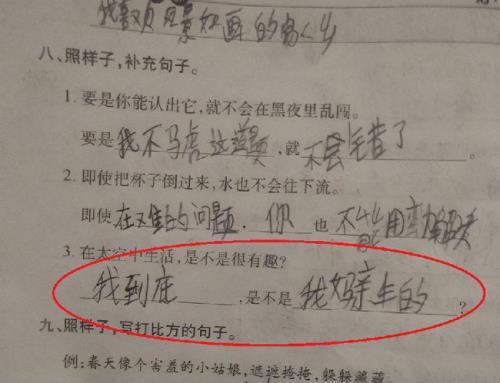 我喜欢风景如画的家乡
八、照样子,补充句子。
1. 要是你能认出它,就不会在黑夜里乱闯。
要是我不马虎这道题,就不会写错了。
2. 即使把杯子倒过来,水也不会往下流。
即使在难的问题,你也不能用
3. 在太空中生活,是不是很有趣?
我到底,是不是我妈亲生的?
九、照样子,写打比方的句子。
例:春天像个害羞的小姑娘,遮遮掩掩,躲躲藏藏